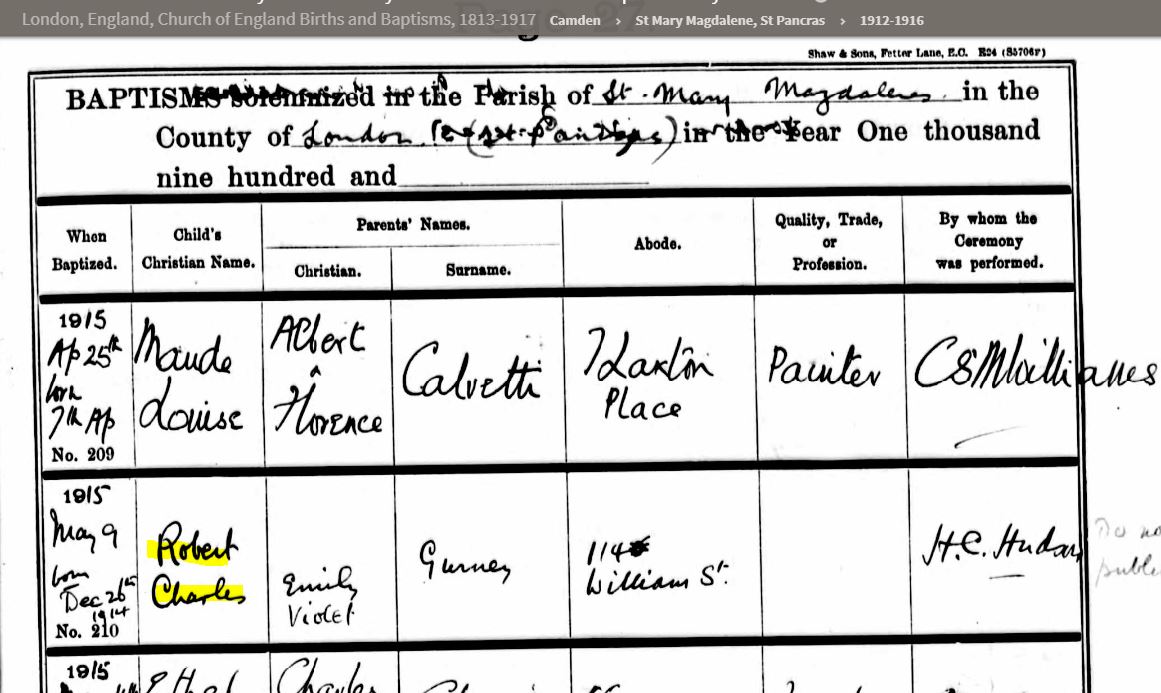 London, England, Church of England Births and Baptisms, 1813-1917 Camden > St Mary Magdalene, St Pancras > 1912-1916
Page 27.
Shaw & Sons, Fetter Lane, E.C. R24 (S5706F)
BAPTISMS solemnized in the Parish of St. Mary Magdalene in the
County of London (St. Pancras) in the Year One thousand
nine hundred and
When Baptized.
Child's Christian Name.
Parents' Names.
Christian.
Surname.
Abode.
Quality, Trade, or Profession.
By whom the Ceremony was performed.
1915
Ap 25th
born
7th Ap
No. 209
Maude
Louise
Albert
&
Florence
Calvetti
Place
Painter
1915
May 9
born
Dec 26th
1914
No. 210
Robert
Charles
Emily
Violet
Gurney
114
William St.
H.C.
Do no
publi
1915
Ethel
Charles